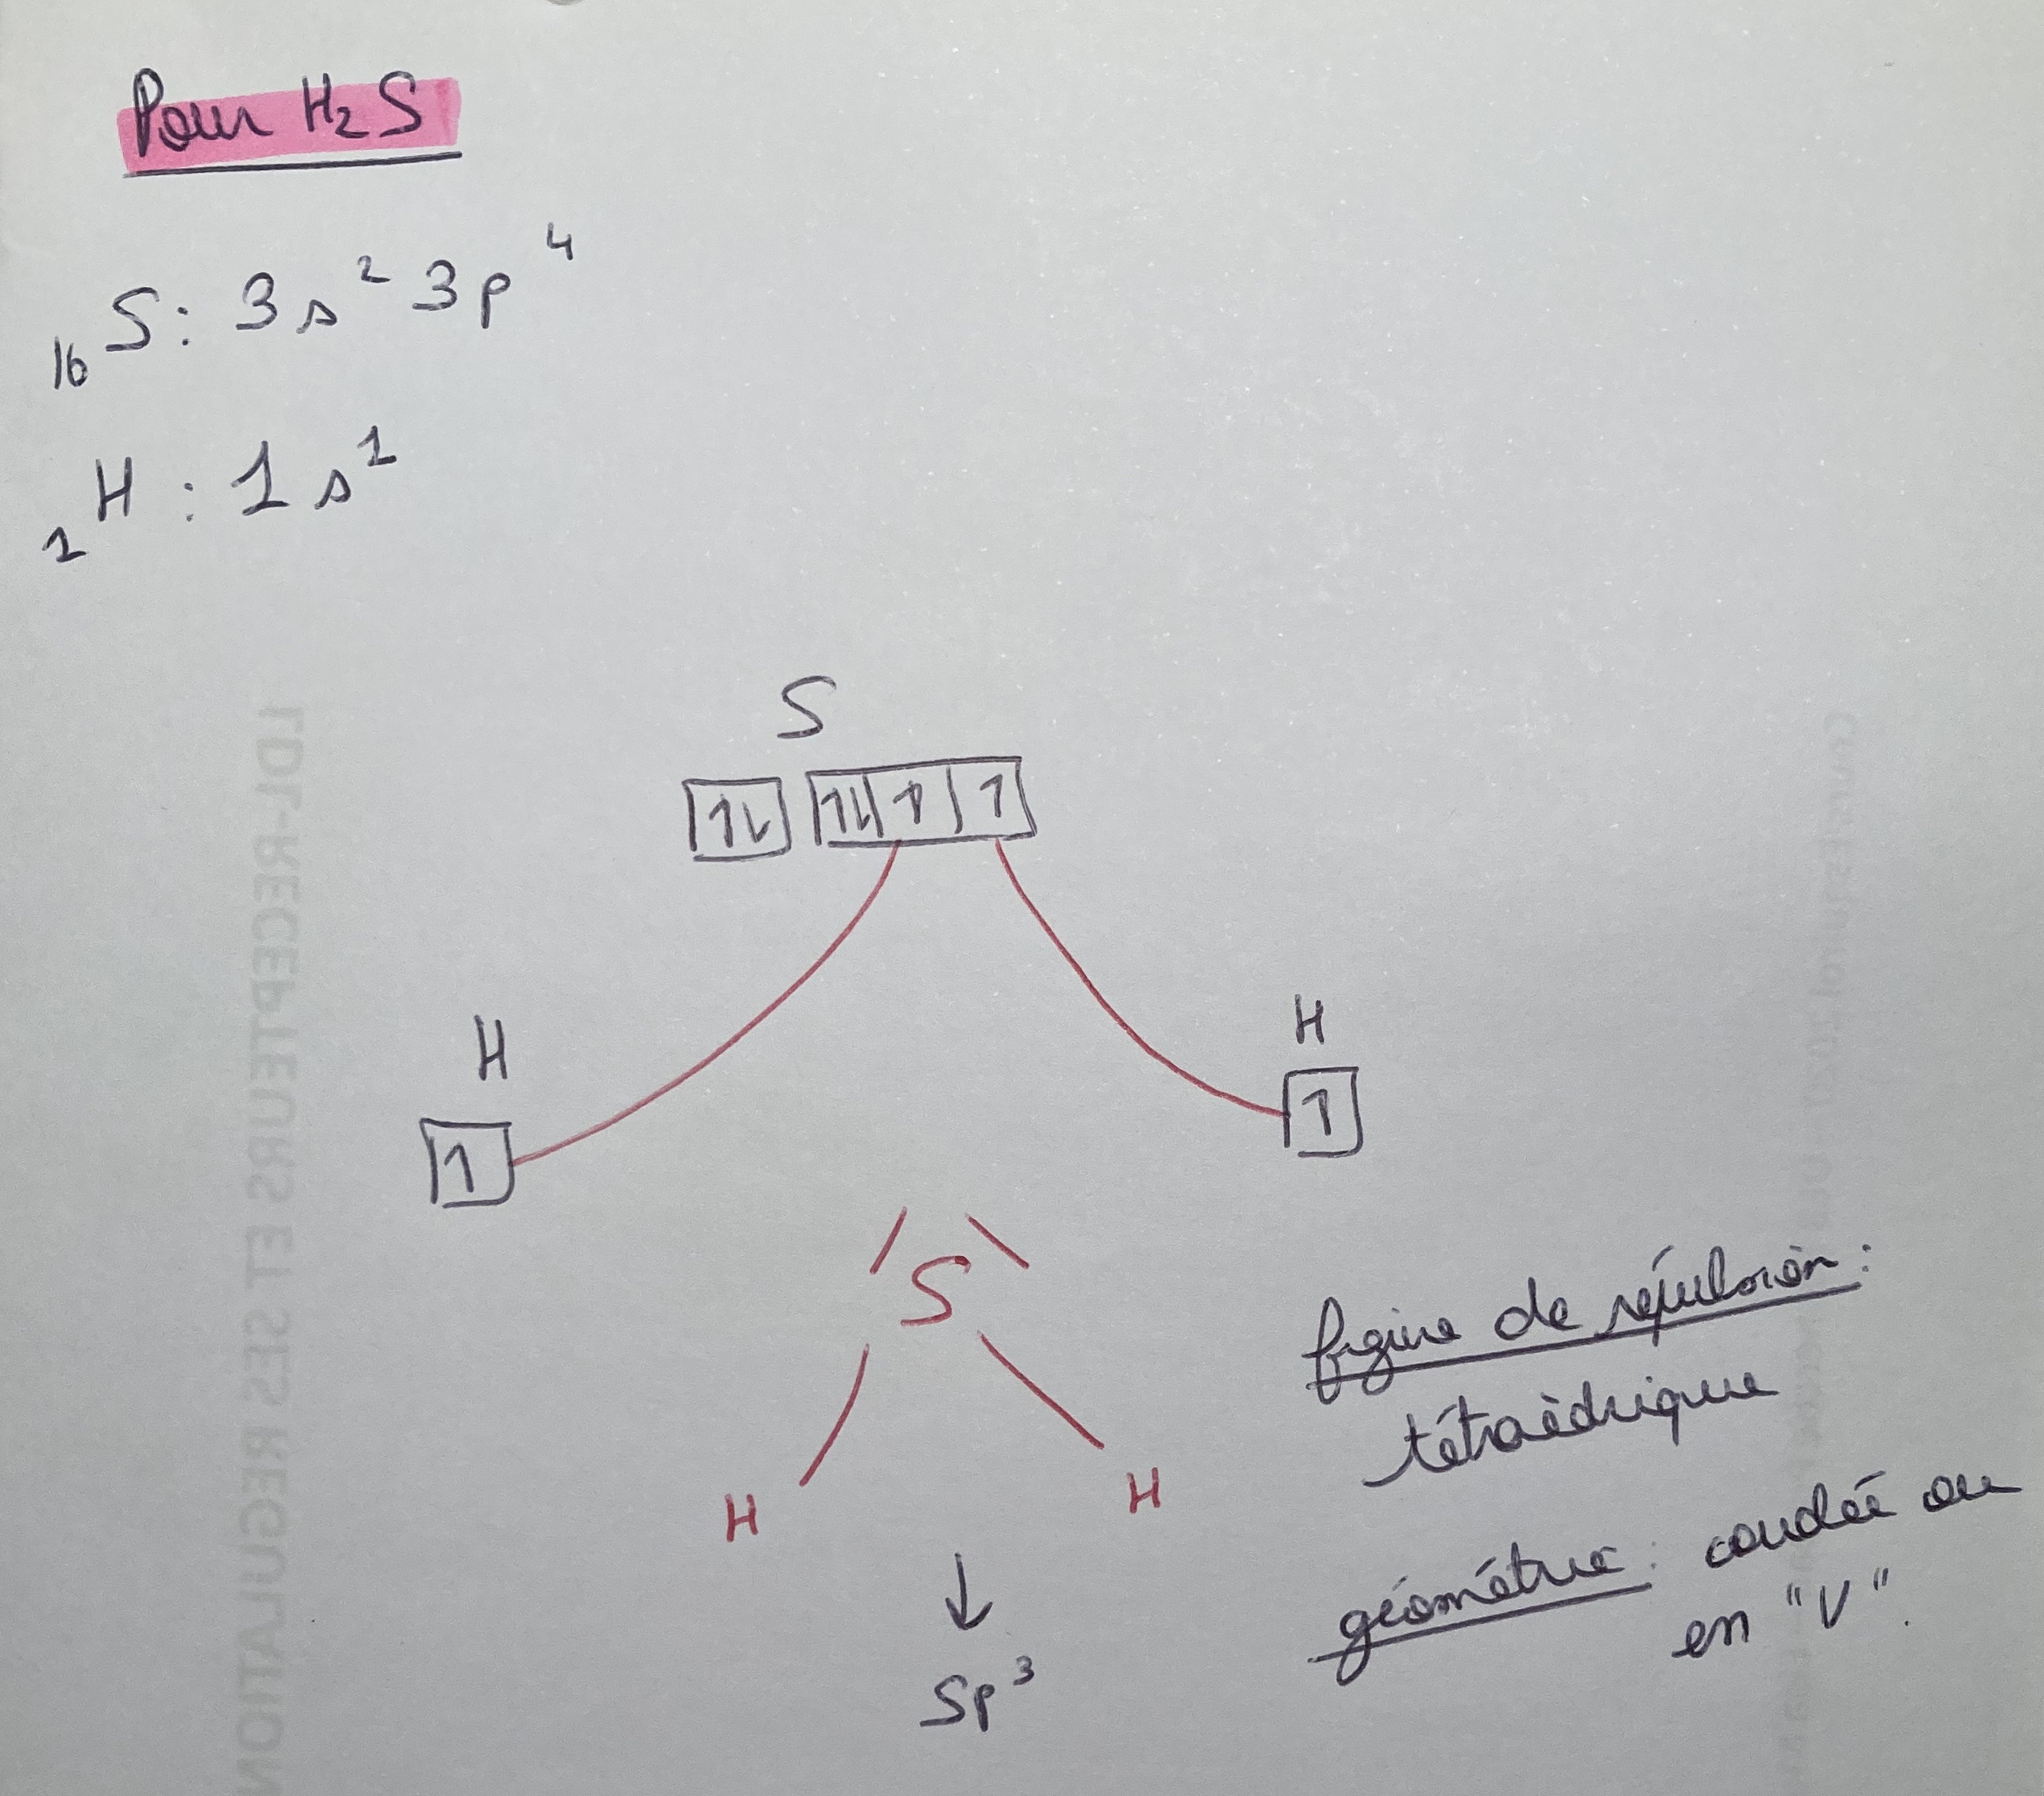 Pour H₂S
₁₆S: 3s² 3p⁴
₁H : 1s¹
S
↑↓ ↑↓ ↑ ↑
H
H
↑
↑
S
H
H
↓
Sp³
figure de répulsion :
tétraèdrique
géométrie : coudée ou
en "V".
LDL-RECEPTEURS ET SES REGULATION